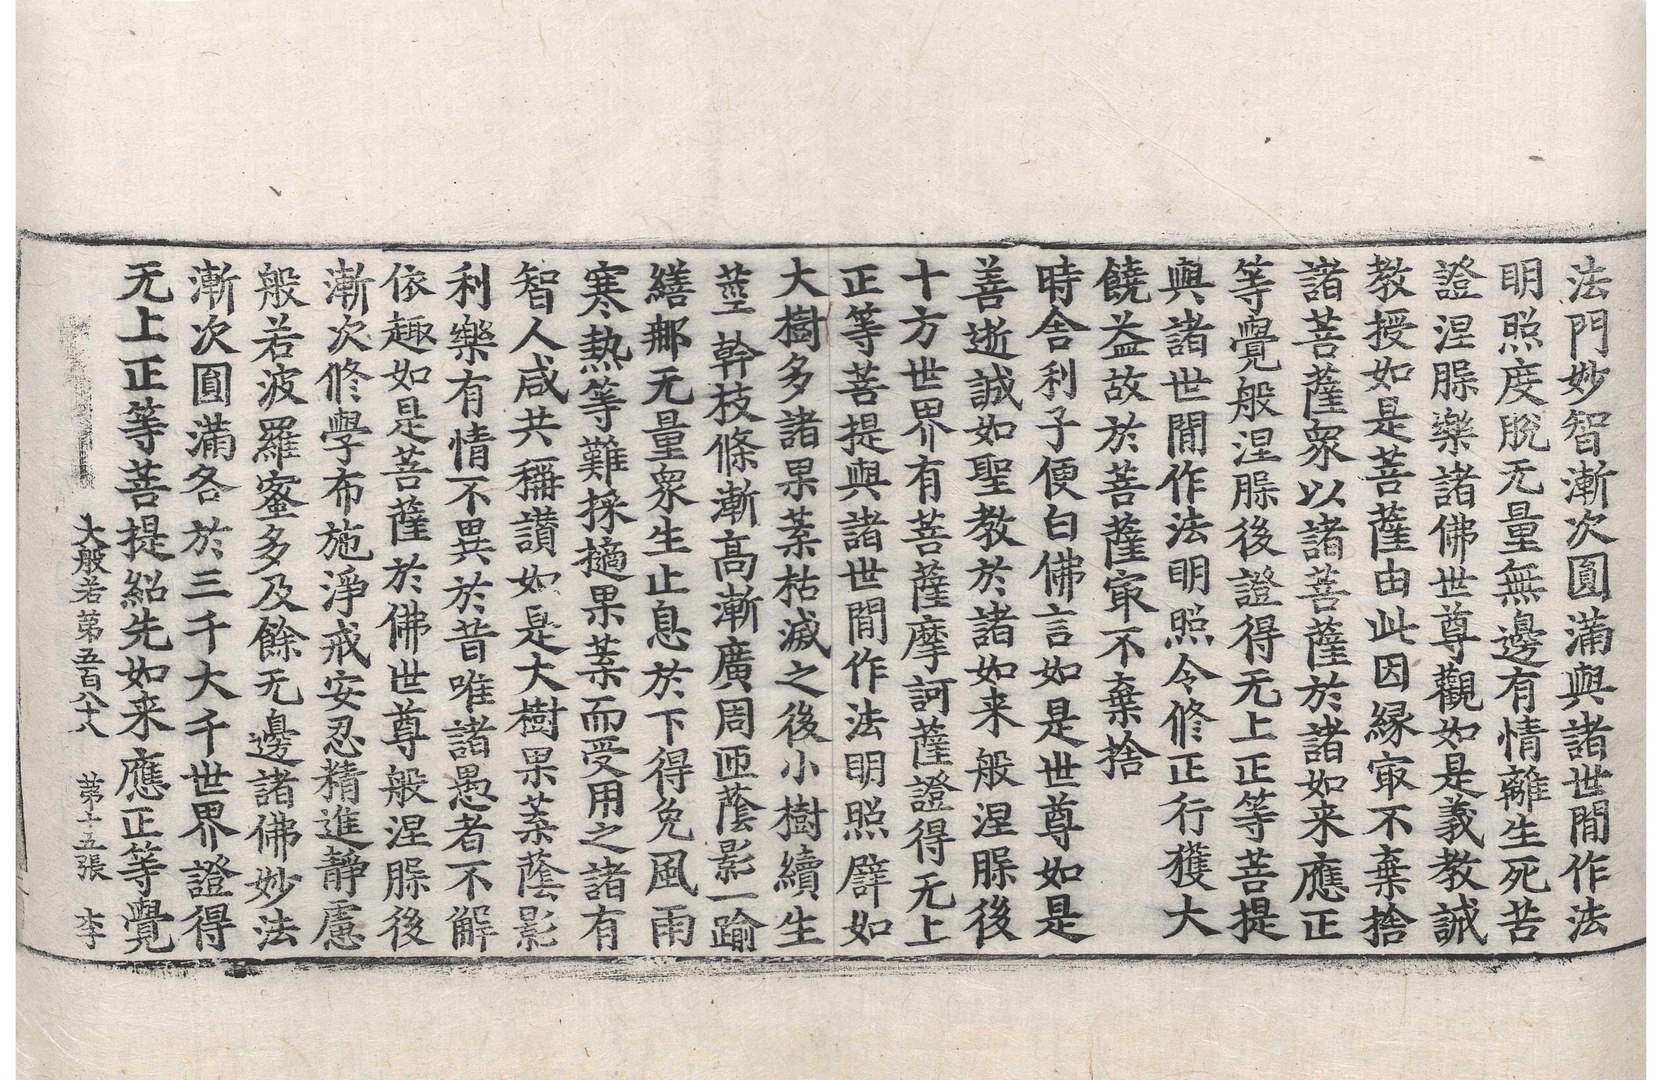 法門妙智漸次圓滿與諸世間作法
明照度脫无量無邊有情離生死苦
證涅腺樂諸佛世尊觀如是義教誡
教授如是菩薩由此因緣㝡不棄捨
諸菩薩衆以諸菩薩於諸如来應正
等覺般涅腺後證得无上正等菩提
與諸世間作法明照令修正行獲大
饒益故於菩薩㝡不棄捨
時舍利子便白佛言如是世尊如是
善逝誠如聖教於諸如来般涅腺後
十方世界有菩薩摩訶薩證得无上
正等菩提與諸世間作法明照譬如
大樹多諸果葉枯滅之後小樹續生
莖幹枝條漸高漸廣周匝蔭影一踰
繕那无量衆生止息於下得免風雨
寒熱等難採擿果葉而受用之諸有
智人咸共稱讚如是大樹果葉蔭影
利樂有情不異於昔唯諸愚者不解
依趣如是菩薩於佛世尊般涅腺後
漸次修學布施淨戒安忍精進靜慮
般若波羅蜜多及餘无邊諸佛妙法
漸次圓滿各於三千大千世界證得
无上正等菩提紹先如来應正等覺
大般若第五百八十八 第十五張 李